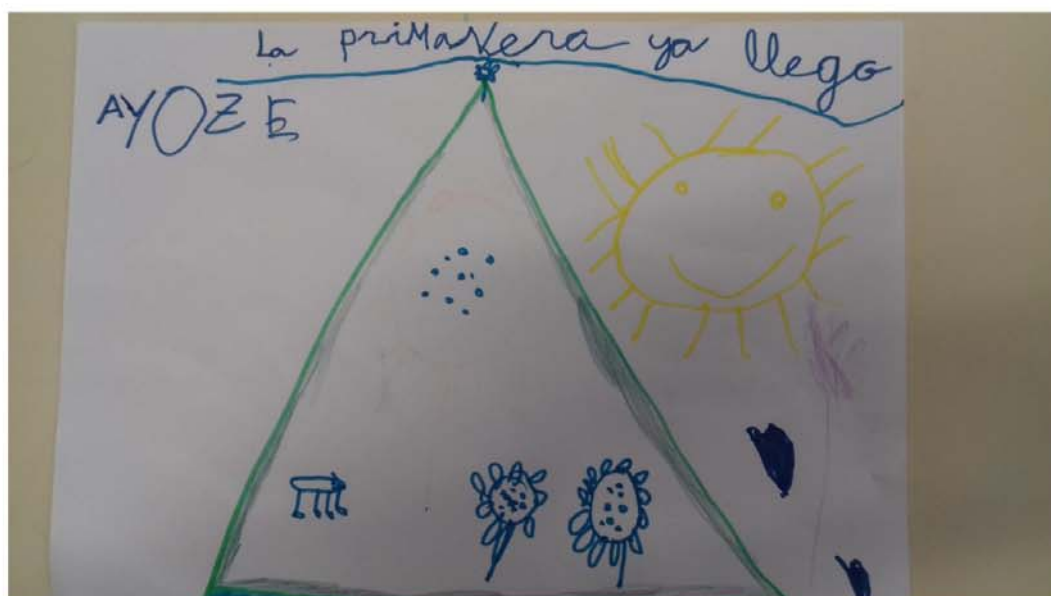 La priMaVera ya llego
AYOZE